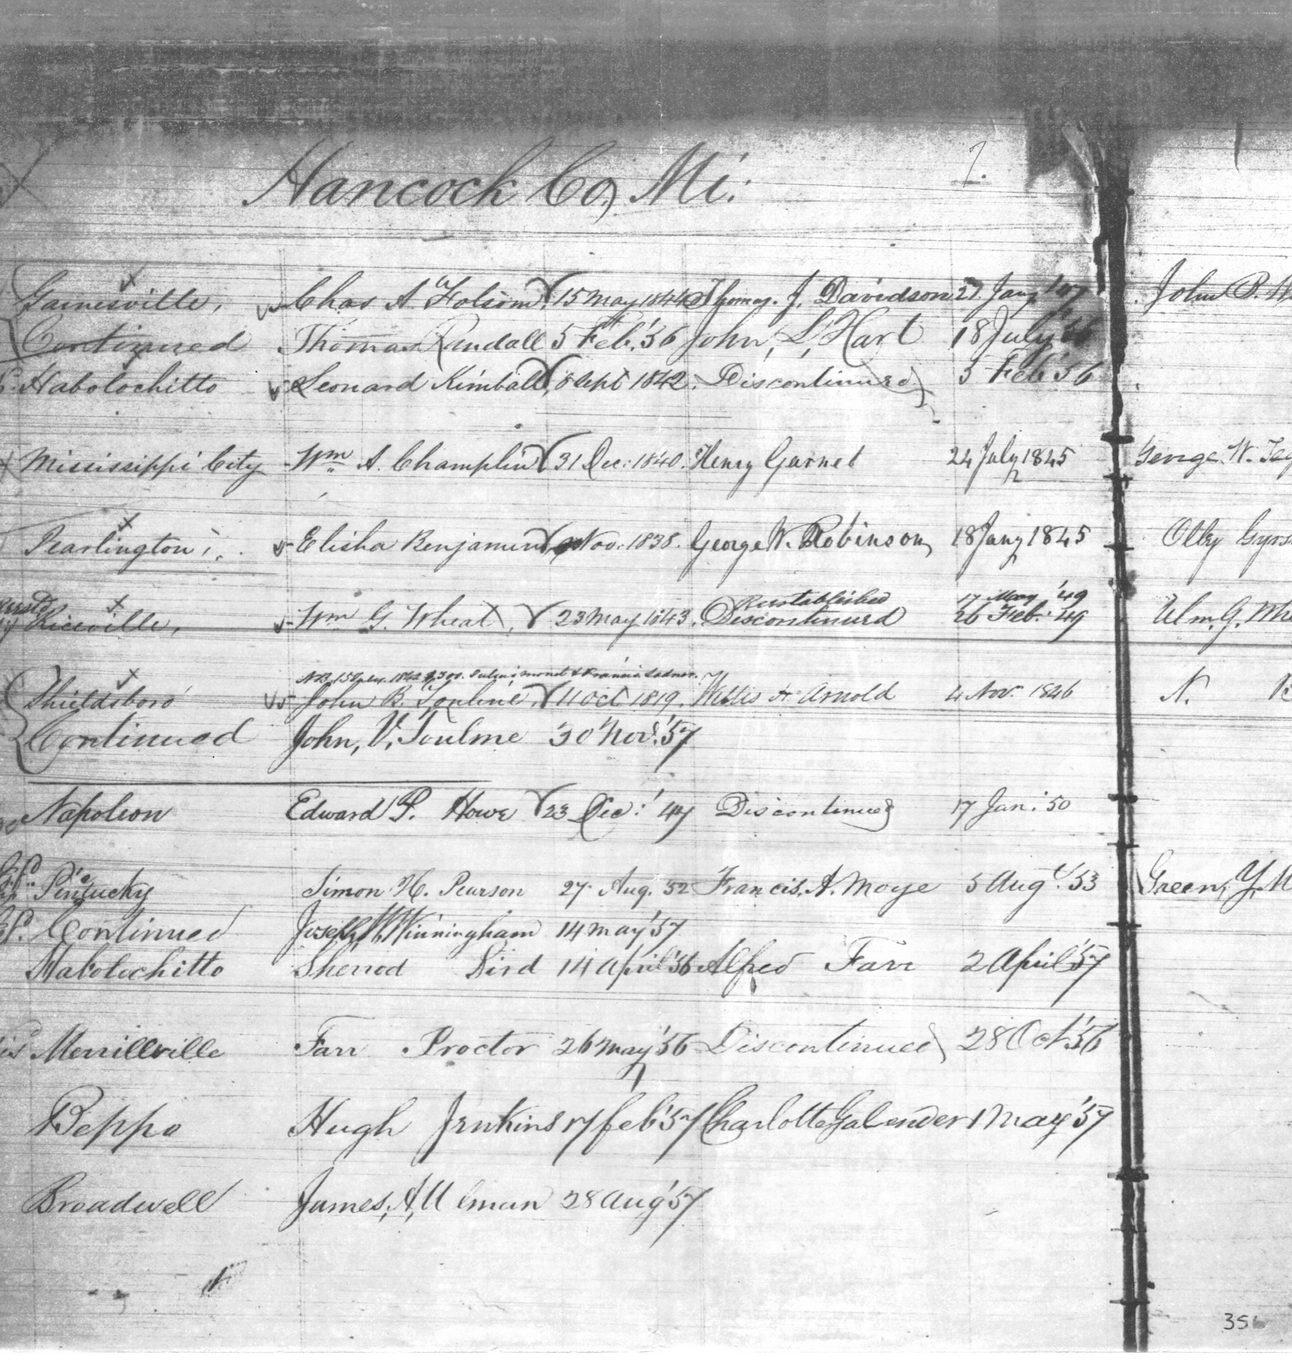 Hancock Co, Mi:
Gainesville, Chas A. Folsom 15 May 1844 Thomas. J. Davidson 27 Jany '47 John P.
Continued Thomas Randall 5 Feb. '56 John, L, Hart 18 July '56
Habolochitto Leonard Kimball, Sept 1842. Discontinued 5 Feb '56
Mississippi City Wm A. Champlin 31 Dec: 1840. Henry Garnet 24 July 1845 George. W.
Pearlington, Elisha Benjamin Nov. 1838. George W. Robinson, 18 Jany 1845
Reestablished 17 May '49
Riceville, Wm G. Wheat, 23 May 1843. Discontinued 26 Feb. '49 G.
Shieldsboro' John B. Toulme, 11 Oct 1819. Arnold 4 Nov 1846 N.
Continued John, V, Toulme 30 Nov. '57
Napoleon Edward P. Howe 23 Dec: '47 Discontinued 17 Jan: '50
Simon H. Pearson 27 Aug. 52 Francis. A. Moye 5 Aug. '53 Green, Y.
Continued Joseph W. Winningham 14 May '57
Habolochitto Sherrod Bird 14 April '56 Alfred Farr 2 April '57
Merrillville Farr Proctor 26 May '56 Discontinued 28 Oct. '56
Beppo Hugh Jenkins 17 Feb '57 Charlotte Galender 1 May '57
Broadwell James, A, Ulman 28 Aug '57